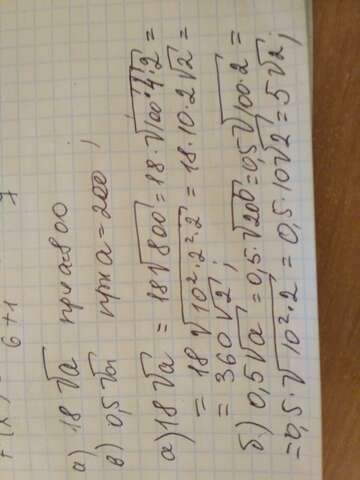 6+1
а) 18 √a при a=800
в) 0,5√a при a=200;
а) 18 √a = 18√800 = 18·√100·4·2 =
= 18 √10²·2²·2 = 18·10·2√2 =
= 360 √2;
б) 0,5√a = 0,5·√200 = 0,5√100·2 =
=0,5·√10²·2 = 0,5·10√2 = 5√2;